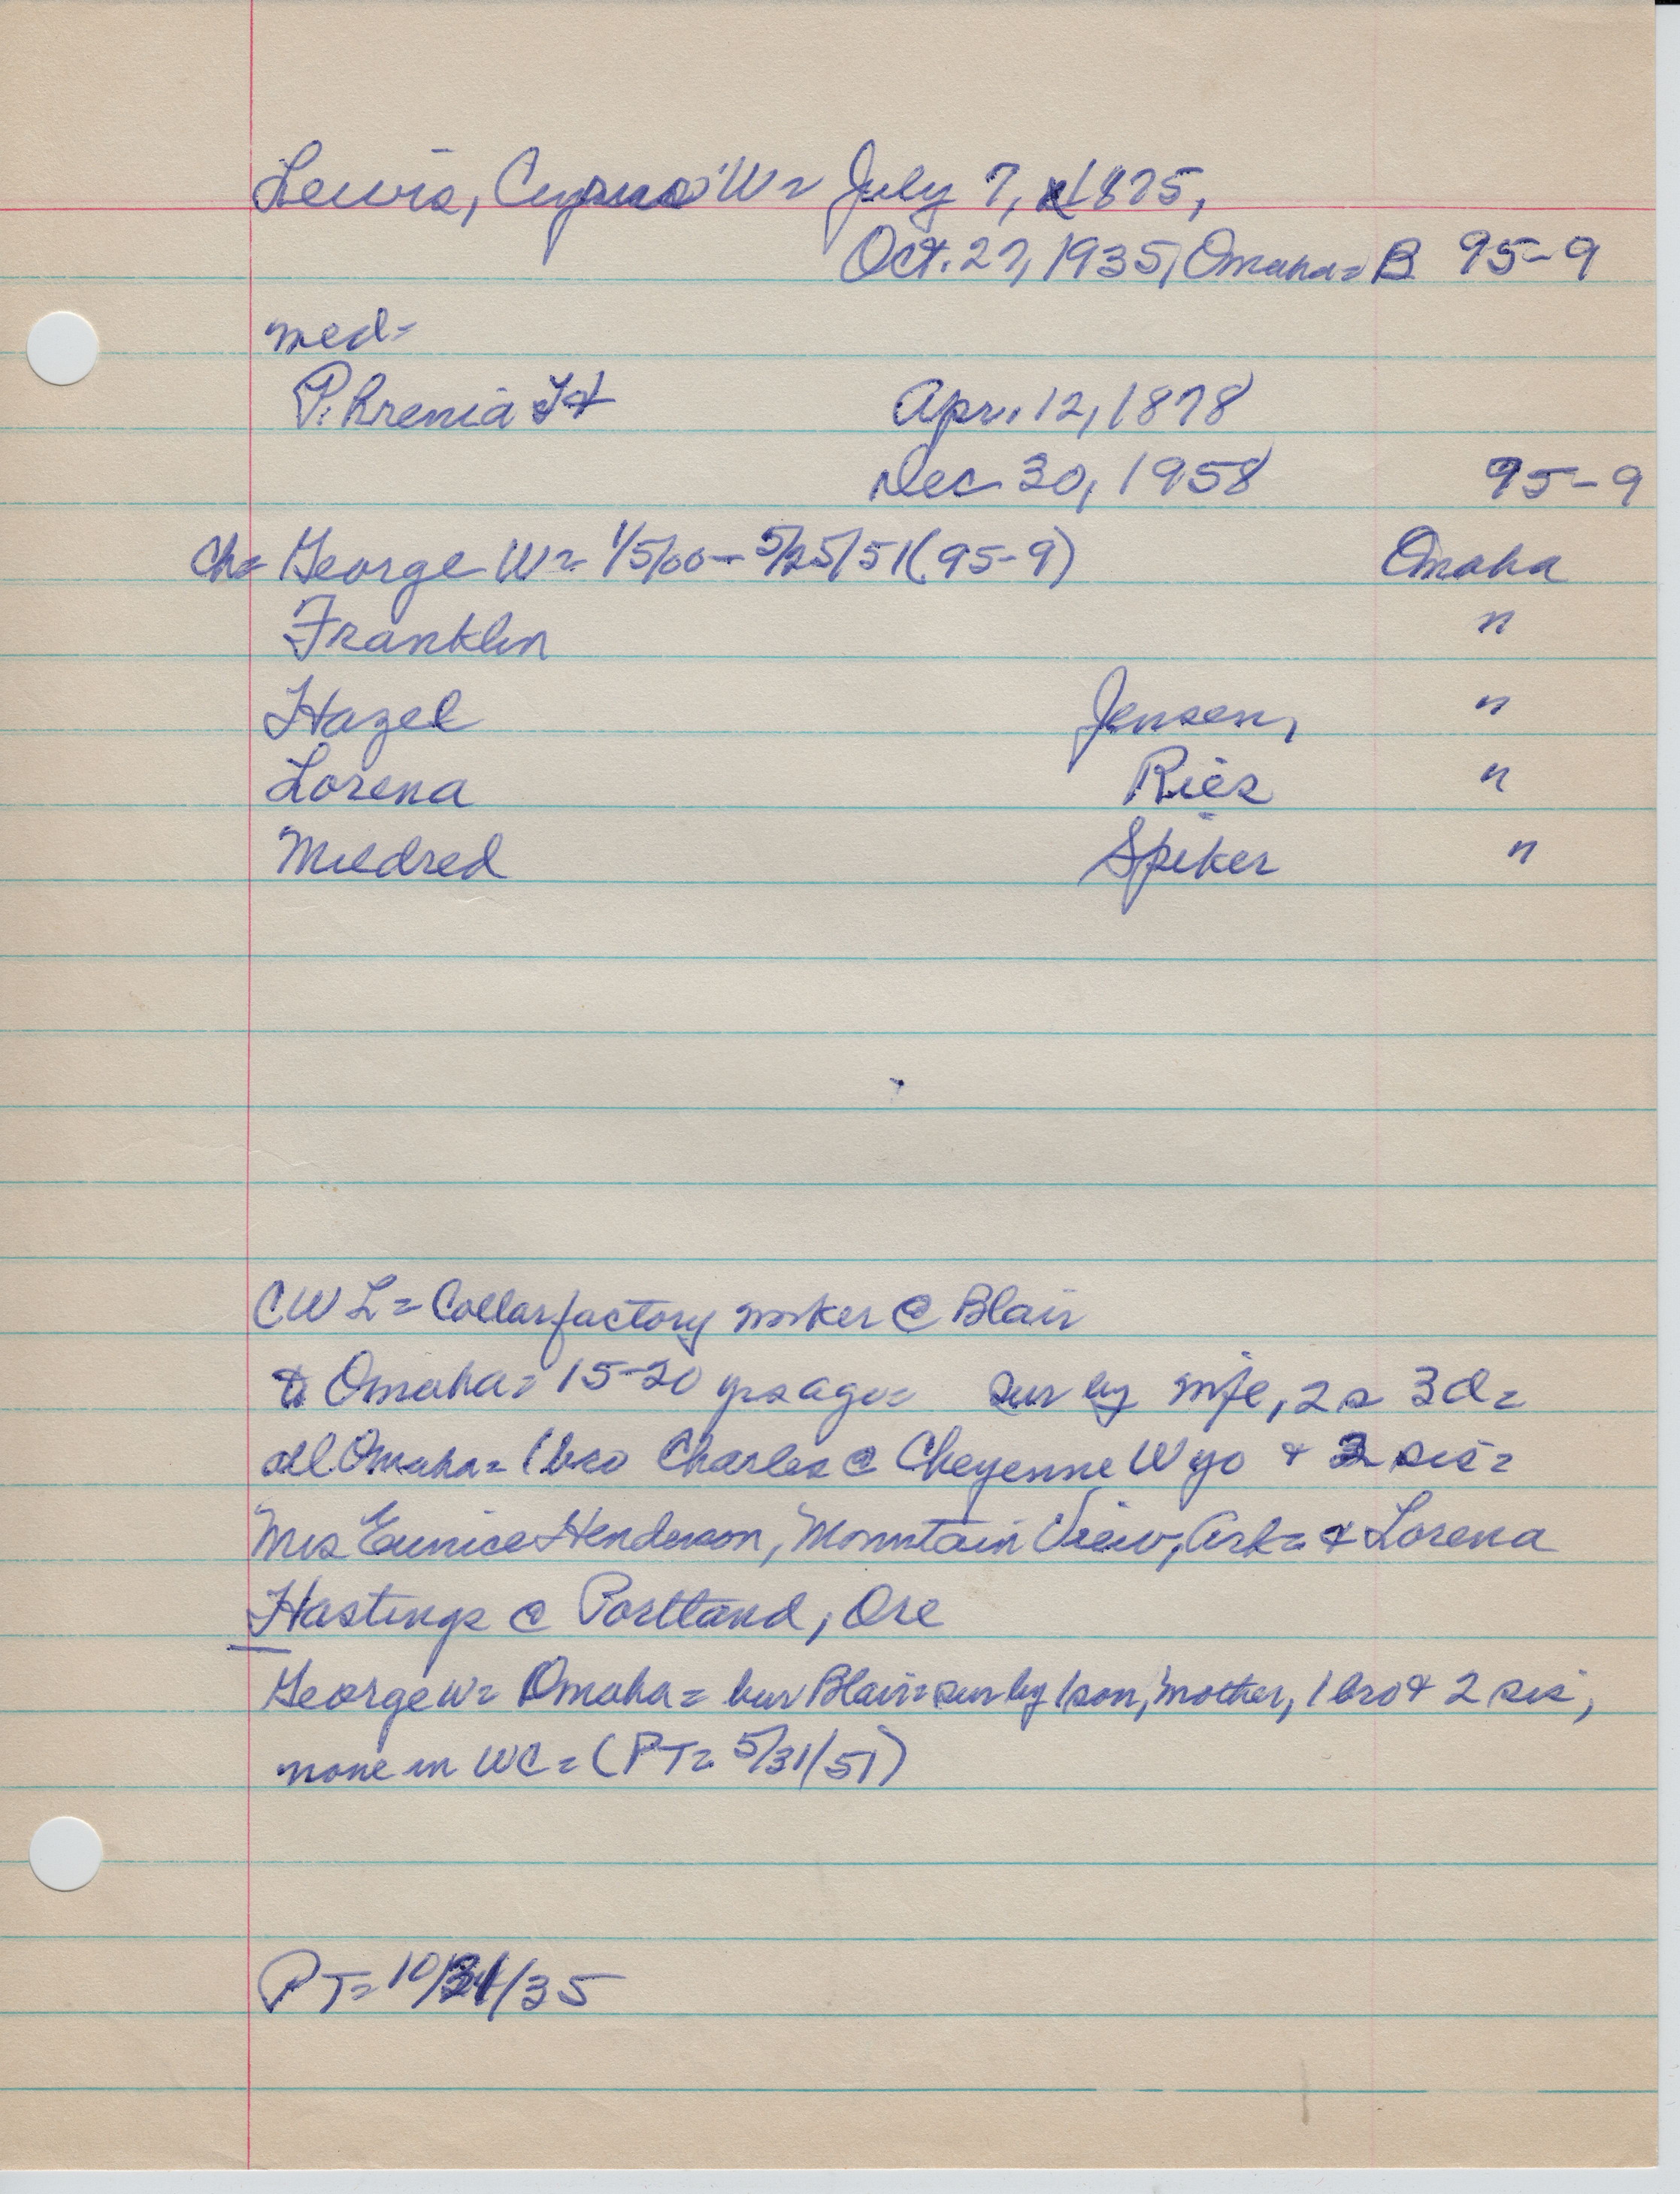 Lewis, Cyrus W= July 7, 1875,
Oct. 27, 1935, Omaha= B 95-9
med-
P. hrenia H
Apr. 12, 1878
Dec 30, 1958 95-9
Ch= George W= 1/5/00 - 5/25/51 (95-9) Omaha
Franklin "
Hazel Jensen, "
Lorena Ries "
Mildred Spiker "
CWL= Collar factory worker @ Blair
to Omaha= 15-20 yrs ago= sur by wife, 2 s 3 d=
all Omaha= 1 bro Charles @ Cheyenne Wyo & 2 sis=
Mrs Eunice Henderson, Mountain View, Ark= & Lorena
Hastings @ Portland, Ore
George W= Omaha= bur Blair= sur by 1 son, mother, 1 bro & 2 sis,
none in WC= (PT= 5/31/51)
PT= 10/31/35